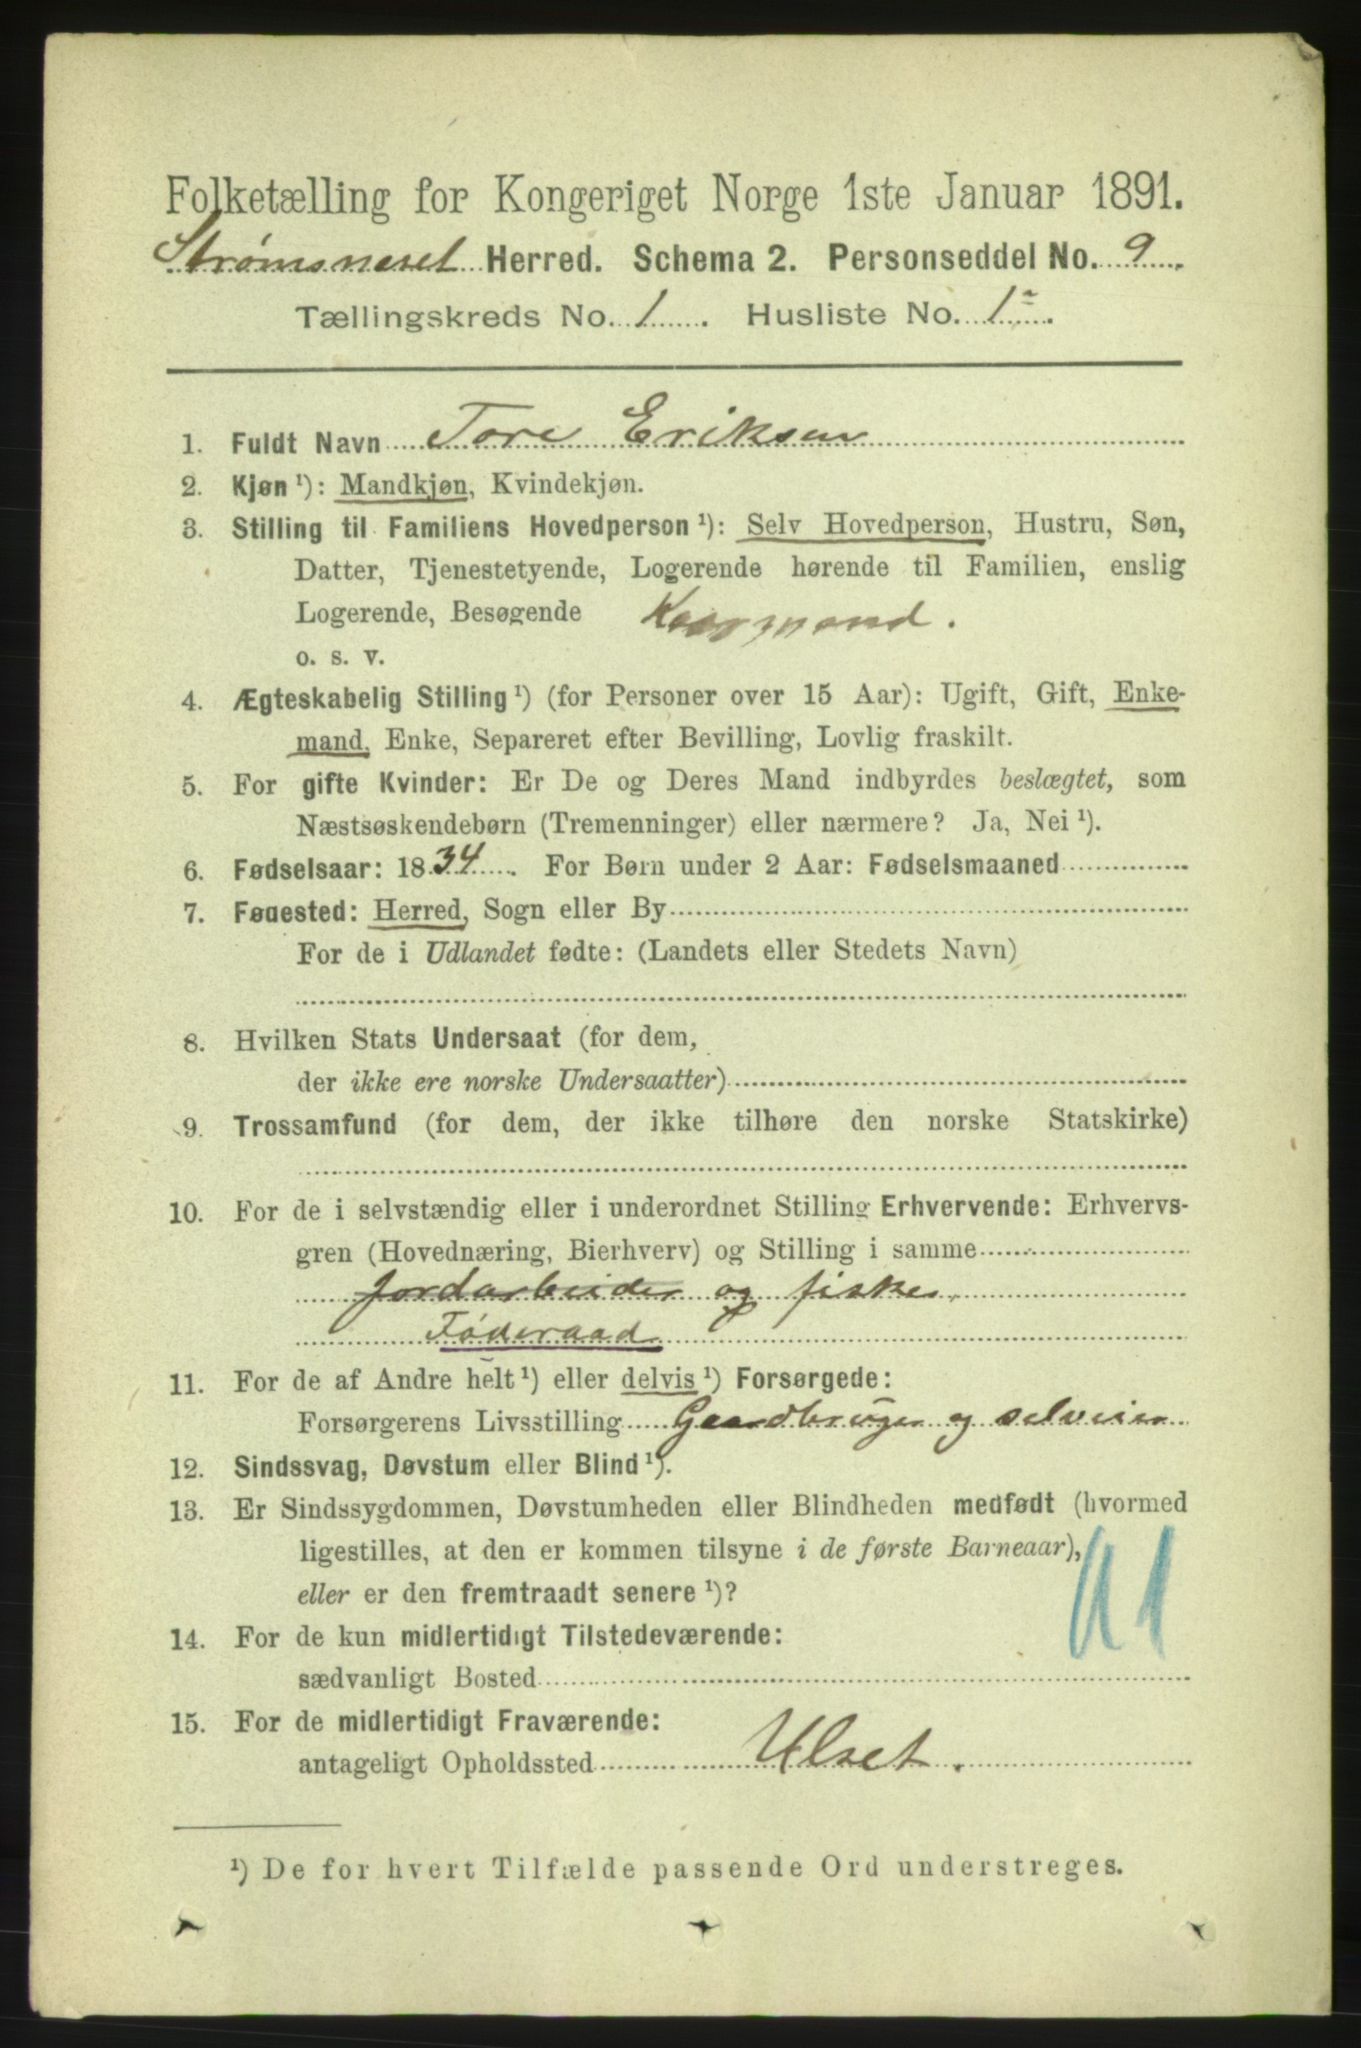 Folketælling for Kongeriget Norge 1ste Januar 1891.
Strømsneset Herred. Schema 2. Personseddel No. 9.
Tællingskreds No. 1. Husliste No. 1.
1. Fuldt Navn Tore Eriksen
2. Kjøn ¹): Mandkjøn, Kvindekjøn.
3. Stilling til Familiens Hovedperson ¹): Selv Hovedperson, Hustru, Søn,
Datter, Tjenestetyende, Logerende hørende til Familien, enslig
Logerende, Besøgende Kaarmand.
o. s. v.
4. Ægteskabelig Stilling ¹) (for Personer over 15 Aar): Ugift, Gift, Enke-
mand, Enke, Separeret efter Bevilling, Lovlig fraskilt.
5. For gifte Kvinder: Er De og Deres Mand indbyrdes beslægtet, som
Næstsøskendebørn (Tremenninger) eller nærmere? Ja, Nei ¹).
6. Fødselsaar: 1834. For Børn under 2 Aar: Fødselsmaaned
7. Fødested: Herred, Sogn eller By
For de i Udlandet fødte: (Landets eller Stedets Navn)
8. Hvilken Stats Undersaat (for dem,
der ikke ere norske Undersaatter)
9. Trossamfund (for dem, der ikke tilhøre den norske Statskirke)
10. For de i selvstændig eller i underordnet Stilling Erhvervende: Erhvervs-
gren (Hovednæring, Bierhverv) og Stilling i samme
Jordarbeider og fisker
Føderaad
11. For de af Andre helt ¹) eller delvis ¹) Forsørgede:
Forsørgerens Livsstilling Gaardbruger og selveier
12. Sindssvag, Døvstum eller Blind ¹).
13. Er Sindssygdommen, Døvstumheden eller Blindheden medfødt (hvormed
ligestilles, at den er kommen tilsyne i de første Barneaar),
eller er den fremtraadt senere ¹)?
14. For de kun midlertidigt Tilstedeværende:
sædvanligt Bosted
15. For de midlertidigt Fraværende:
antageligt Opholdssted Ulset.
¹) De for hvert Tilfælde passende Ord understreges.